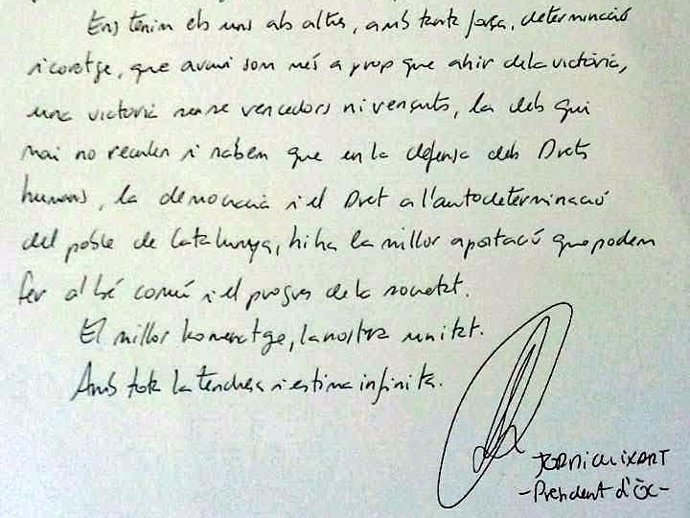 Ens tenim els uns als altres, amb tanta força, determinació
i coratge, que avui som més a prop que ahir de la victòria,
una victòria sense vencedors ni vençuts, la dels qui
mai no reculen i saben que en la defensa dels Drets
humans, la democràcia i el Dret a l'autodeterminació
del poble de Catalunya, hi ha la millor aportació que podem
fer al bé comú i el progrés de la societat.
El millor homenatge, la nostra unitat.
Amb tota la tendresa i estima infinita.
JORDI CUIXART
-President d'Òc-